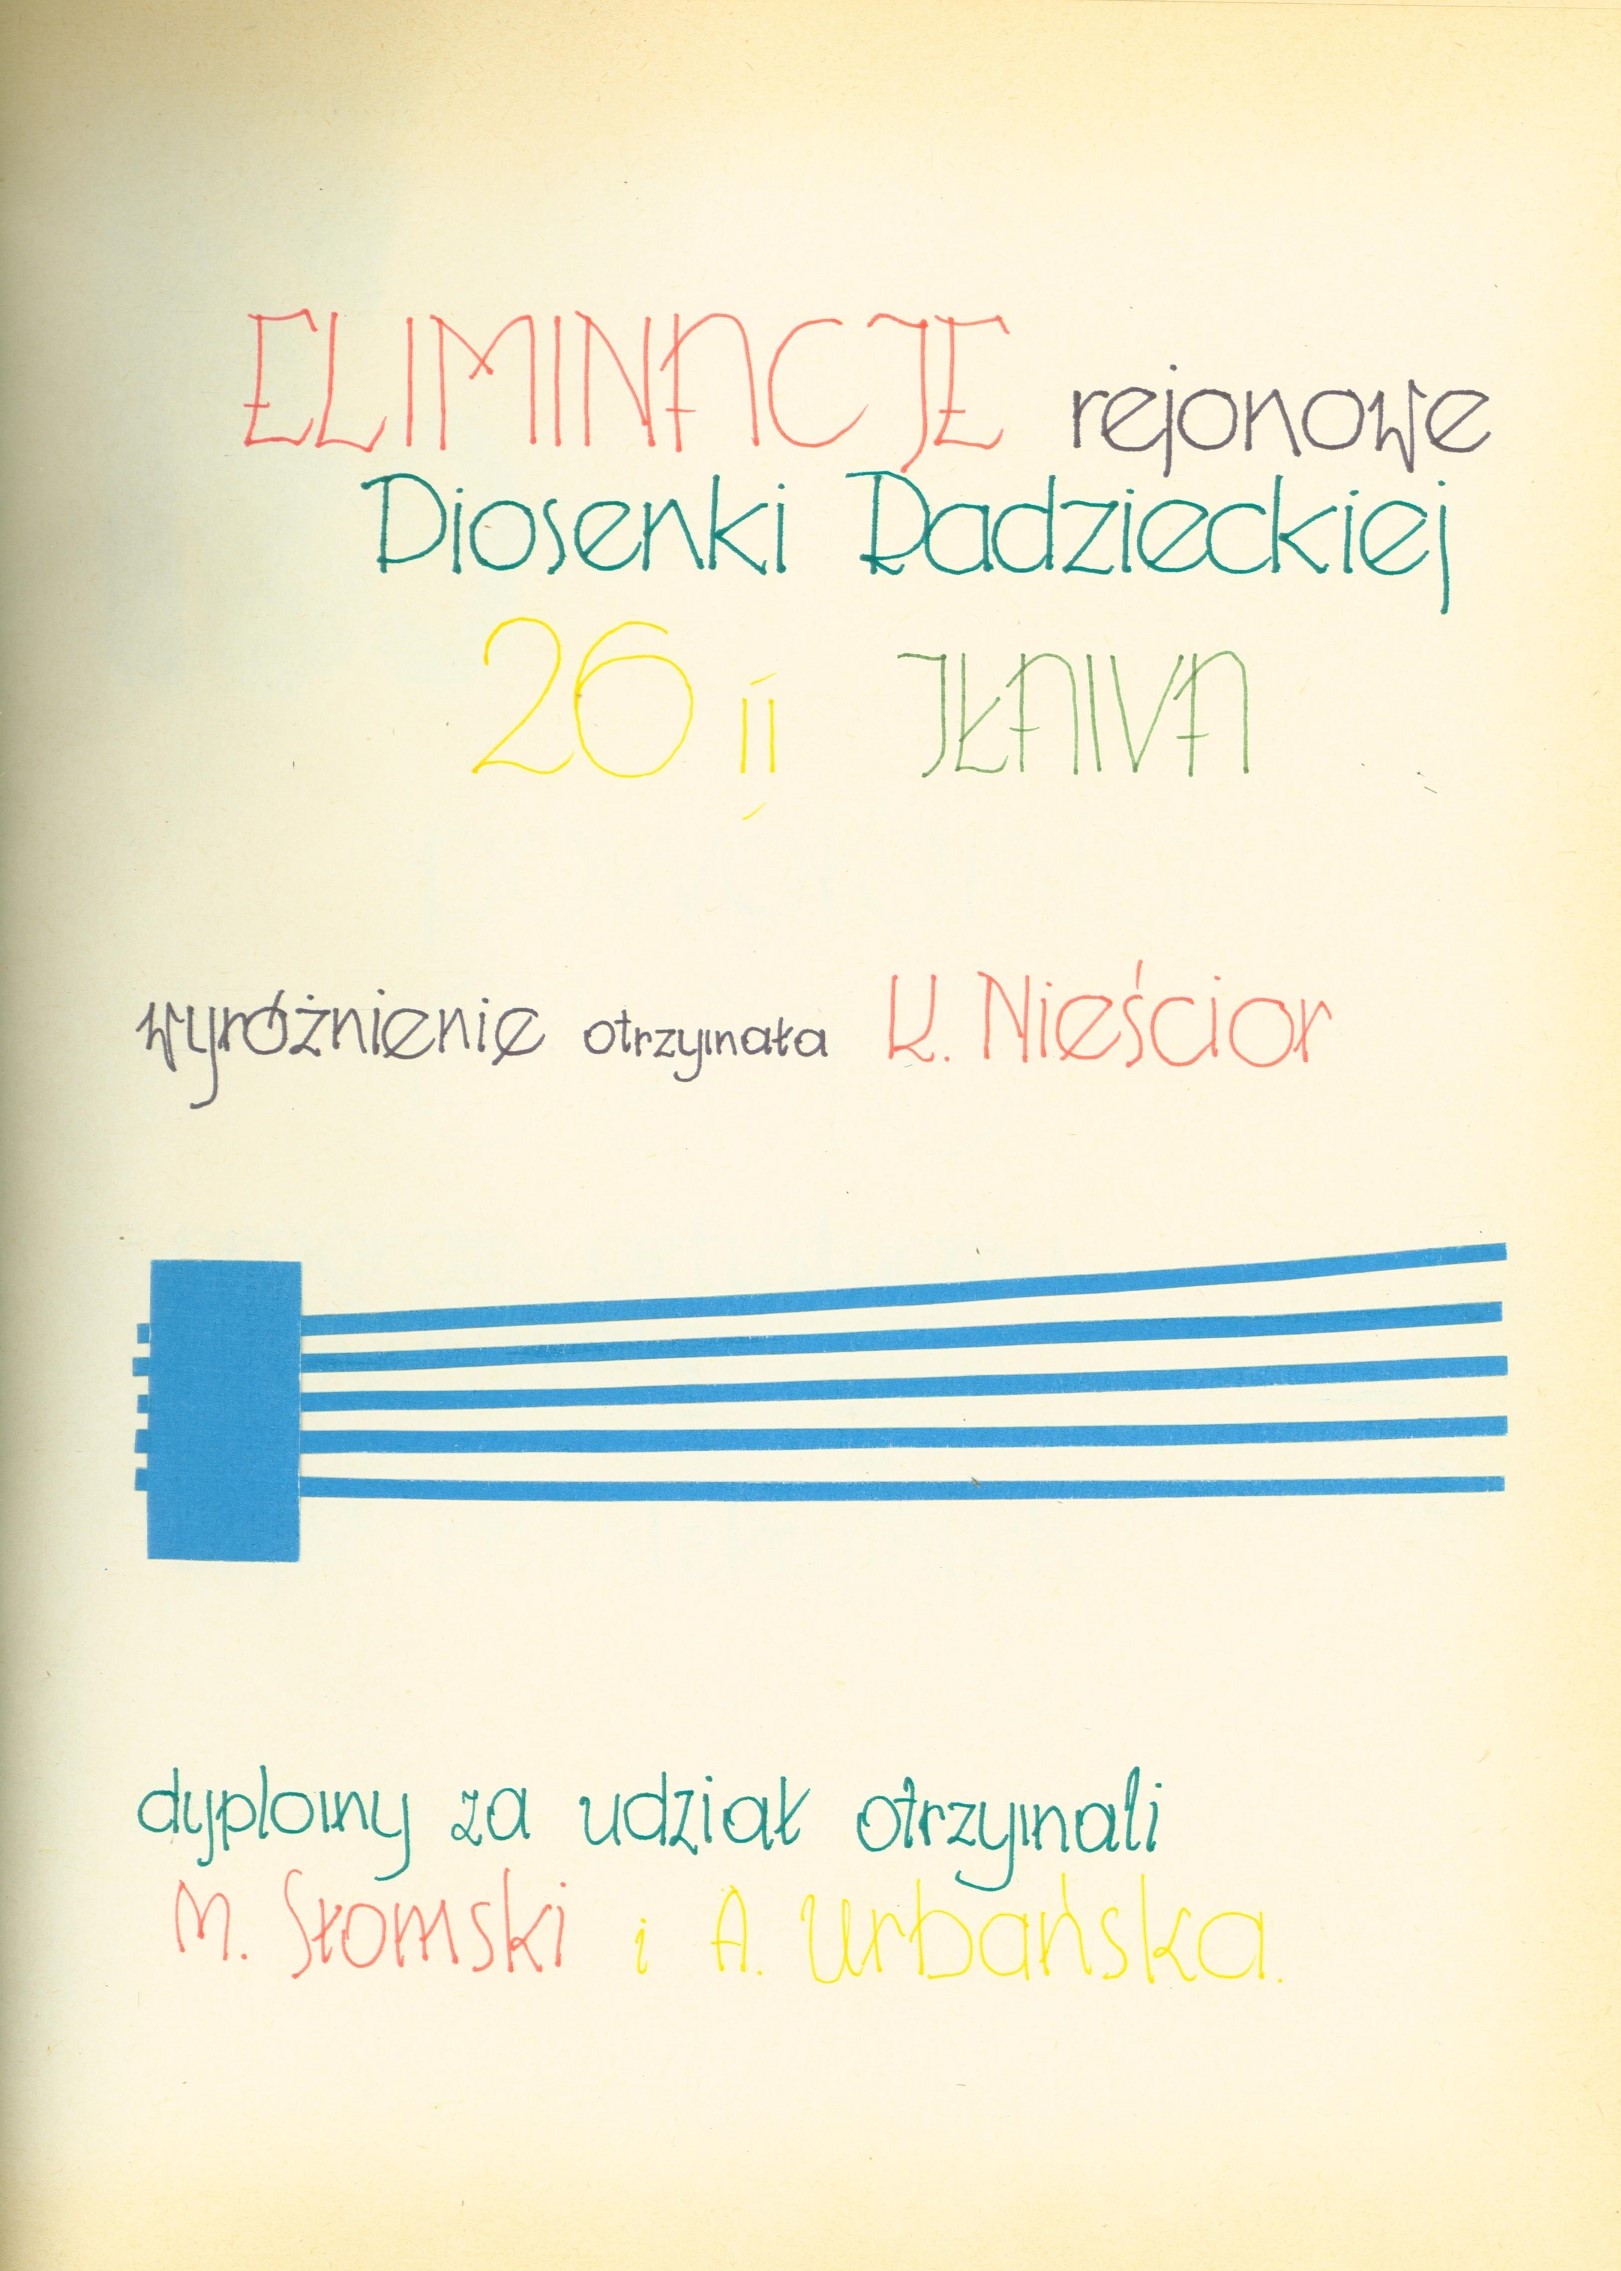 ELIMINACJE rejonowe
Piosenki Radzieckiej
26 II JŁAWA
wyróżnienie otrzymała K. Nieścior
dyplomy za udział otrzymali
M. Słomski i A. Urbańska.